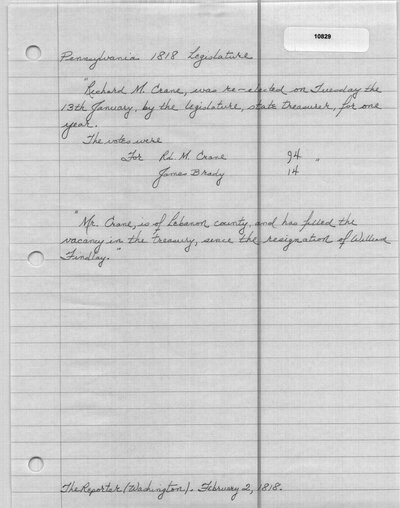 10829
Pennsylvania 1818 Legislature
"Richard M. Crane, was re-elected on Tuesday the
13th January, by the legislature, state treasurer, for one
year.
The votes were
For Rd M. Crane 94 "
James Brady 14
"Mr. Crane, is of Lebanon county, and has filled the
vacancy in the treasury, since the resignation of William
Findlay."
The Reporter (Washington). February 2, 1818.